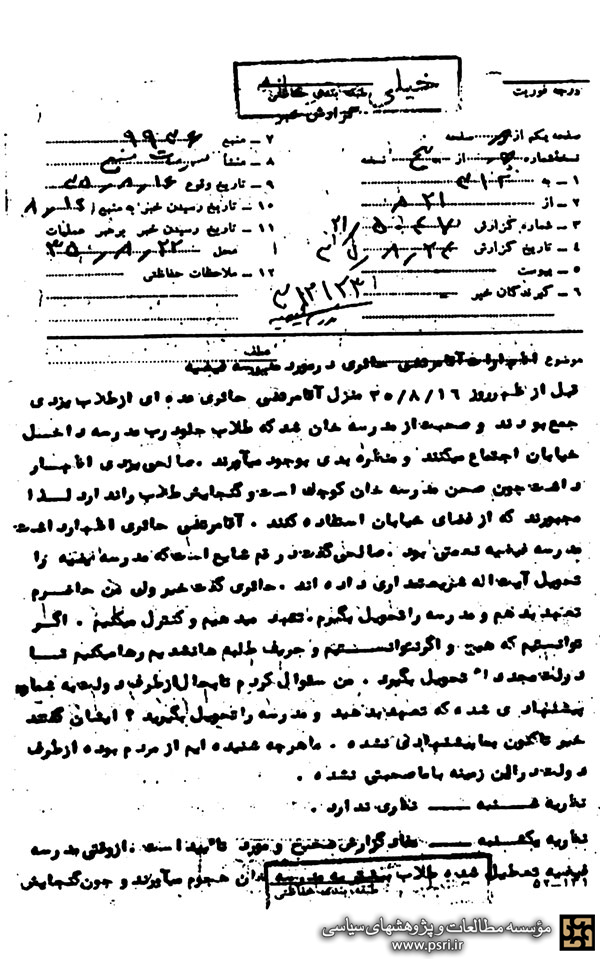 خیلی محرمانه
طبقه بندی حفاظتی
گزارش خبر
درجه فوریت
صفحه یکم از صفحه
نسخه شماره از پنج نسخه
۱ – به ۳۱۲
۲ – از ۲۱ ه
۳ – شماره گزارش
۴ – تاریخ گزارش
۵ – پیوست
۶ – گیرندگان خبر
۷ – منبع ۹۹۳۶
۸ – منشأ
۹ – تاریخ وقوع ۳۵٫۸٫۱۶
۱۰ – تاریخ رسیدن خبر به منبع
۱۱ – تاریخ رسیدن خبر برهبر عملیات
محل ۳۵٫۸٫۲۲
۱۲ – ملاحظات حفاظتی
موضوع اظهارات آقا مرتضی حائری در مورد مدرسه فیضیه
قبل از ظهر روز ۳۵/۸/۱۶ منزل آقا مرتضی حائری عده ای از طلاب یزدی
جمع بودند و صحبت از مدرسه خان شد که طلاب جلو درب مدرسه داخل
خیابان اجتماع میکنند و منظره بدی بوجود میآورند . صالحی یزدی اظهار
داشت چون صحن مدرسه خان کوچک است و گنجایش طلاب را ندارد لذا
مجبورند که از فضای خیابان استفاده کنند . آقا مرتضی حائری اظهار داشت
مدرسه فیضیه نعمتی بود . صالحی گفت در قم شایع است که مدرسه فیضیه را
تحویل آیت اله شریعتمداری داده اند . حائری گفت خیر ولی من حاضرم
تعهد بدهم و مدرسه را تحویل بگیرم . تعهد میدهیم و کنترل میکنیم . اگر
توانستیم که هیچ و اگر نتوانستیم و حریف طلبه ها نشدیم رها میکنیم تا
دولت مجددا" تحویل بگیرد . من سئوال کردم تا بحال از طرف دولت به شما
پیشنهادی شده که تعهد بدهید و مدرسه را تحویل بگیرید ؟ ایشان گفتند
خیر تاکنون بما پیشنهادی نشده . ما هر چه شنیده ایم از مردم بوده از طرف
دولت در این زمینه با ما صحبتی نشده .
نظریه شنبه — نظری ندارد .
نظریه یکشنبه — مفاد گزارش صحیح و مورد تائید است . از وقتی مدرسه
فیضیه تعطیل شده طلاب بیشتر به مدرسه خان هجوم میآورند و چون گنجایش
طبقه بندی حفاظتی
۵۲–۱۲۱
مؤسسه مطالعات و پژوهشهای سیاسی
www.psri.ir